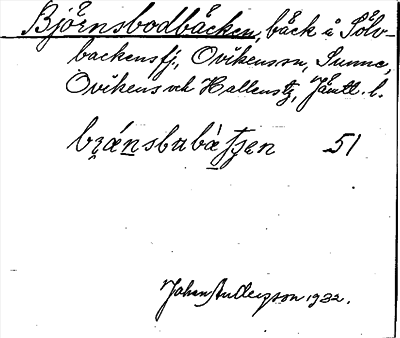 Björnsbodbäcken, bäck å Sölv-
backensfj., Ovikenssn, Sunne,
Ovikens och Hallens tg, Jämtl. l.
bránsbubátsen 51
Johan Anderzon 1932.